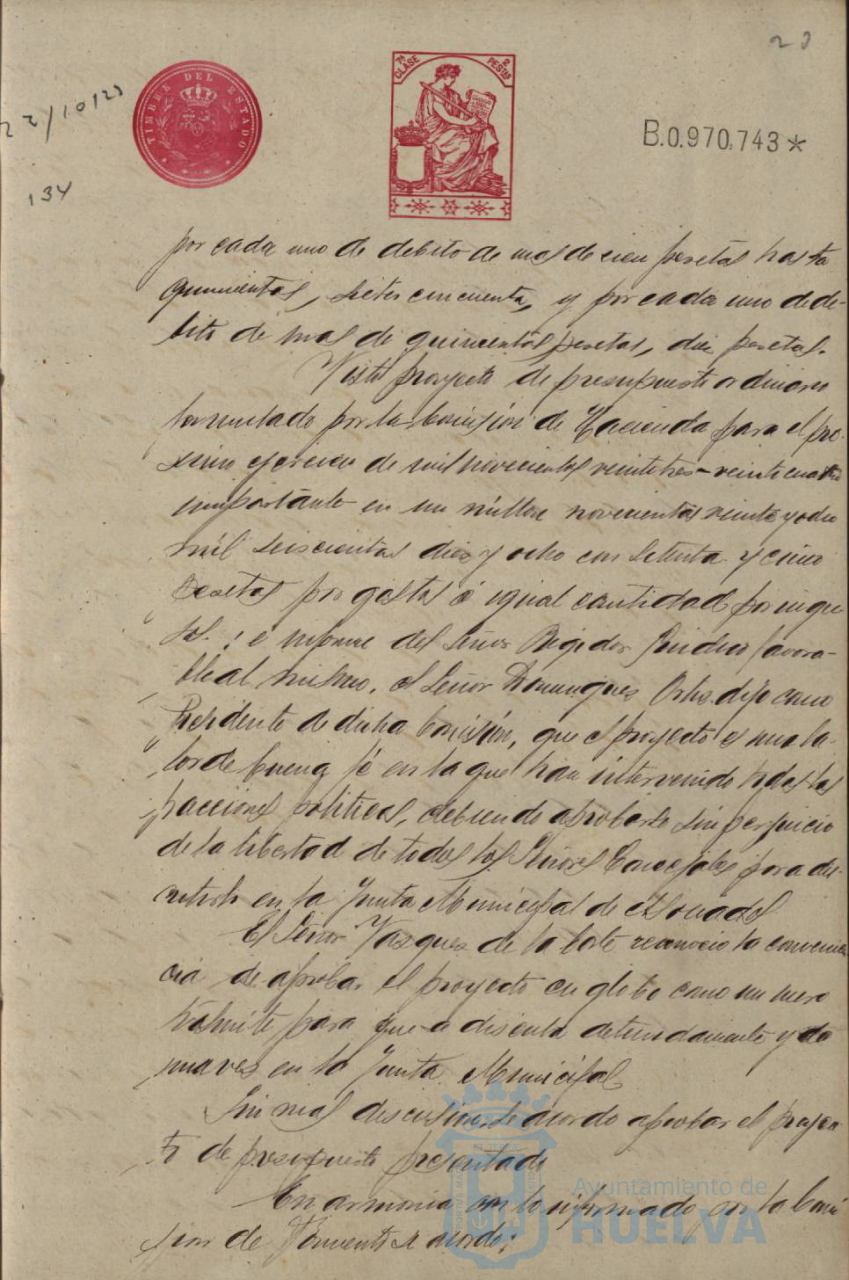 23
22/10/23
134
TIMBRE DEL ESTADO
7ª CLASE
2 PESTAS
B.0.970.743*
por cada uno de debito de mas de cien pesetas hasta
quinientas, siete cincuenta, y por cada uno de dé-
bito de mas de quinientas pesetas, diez pesetas.
Visto proyecto de presupuesto ordinario
formulado por la Comisión de Hacienda para el pro-
ximo ejercicio de mil novecientos veintitres-veinticuatro
importante en un millon novecientas veinte y ocho
mil seiscientas diez y ocho con setenta y cinco
pesetas por gastos é igual cantidad por ingre
sos: é informe del Señor Regidor Síndico favora-
ble al mismo, el Señor Dominguez Ortiz dijo como
Presidente de dicha Comisión, que el proyecto es una la-
bor de buena fé en la que han intervenido todas las
fracciones politicas, debiendo aprobarlo sin perjuicio
de la libertad de todos los Señores Concejales para dis-
cutirlo en la Junta Municipal de Asociados
El Señor Vazquez de la Corte reconocio la convenien
cia de aprobar el proyecto en globo como un mero
trámite, para que se discuta detenidamente y
en la Junta Municipal
Sin mas discusion se acordo aprobar el proyec
to de presupuesto presentado
En armonia con lo informado por la Comi
sion de Fomento se acordó:
Ayuntamiento de
HUELVA